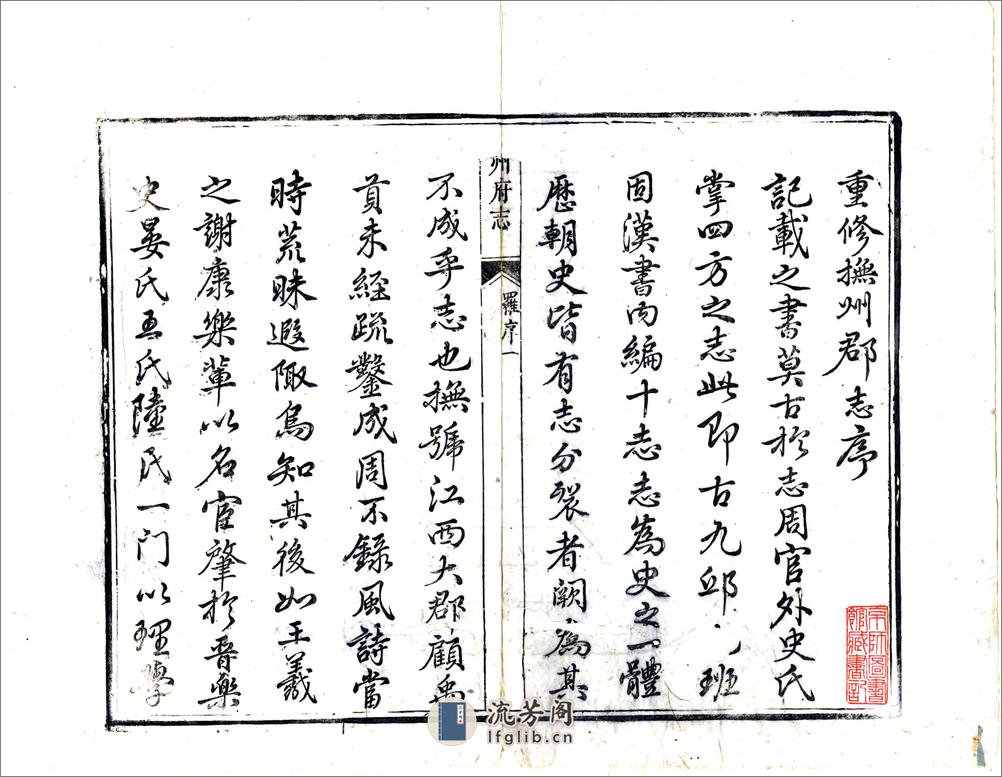 重修撫州郡志序
記載之書莫古於志周官外史氏
掌四方之志此即古九邱班
固漢書內編十志志為史之一體
歷朝史皆有志分裂者闕為其
州府志
羅序一
不成乎志也撫號江西大郡顧禹
貢未經疏鑿成周不錄風詩當
時荒昧遐陬烏知其後如王羲
之謝康樂輩以名宦肇於晉樂
史晏氏王氏陸氏一門以理學
京師圖書
館藏書記
流芳阁
lfglib.cn